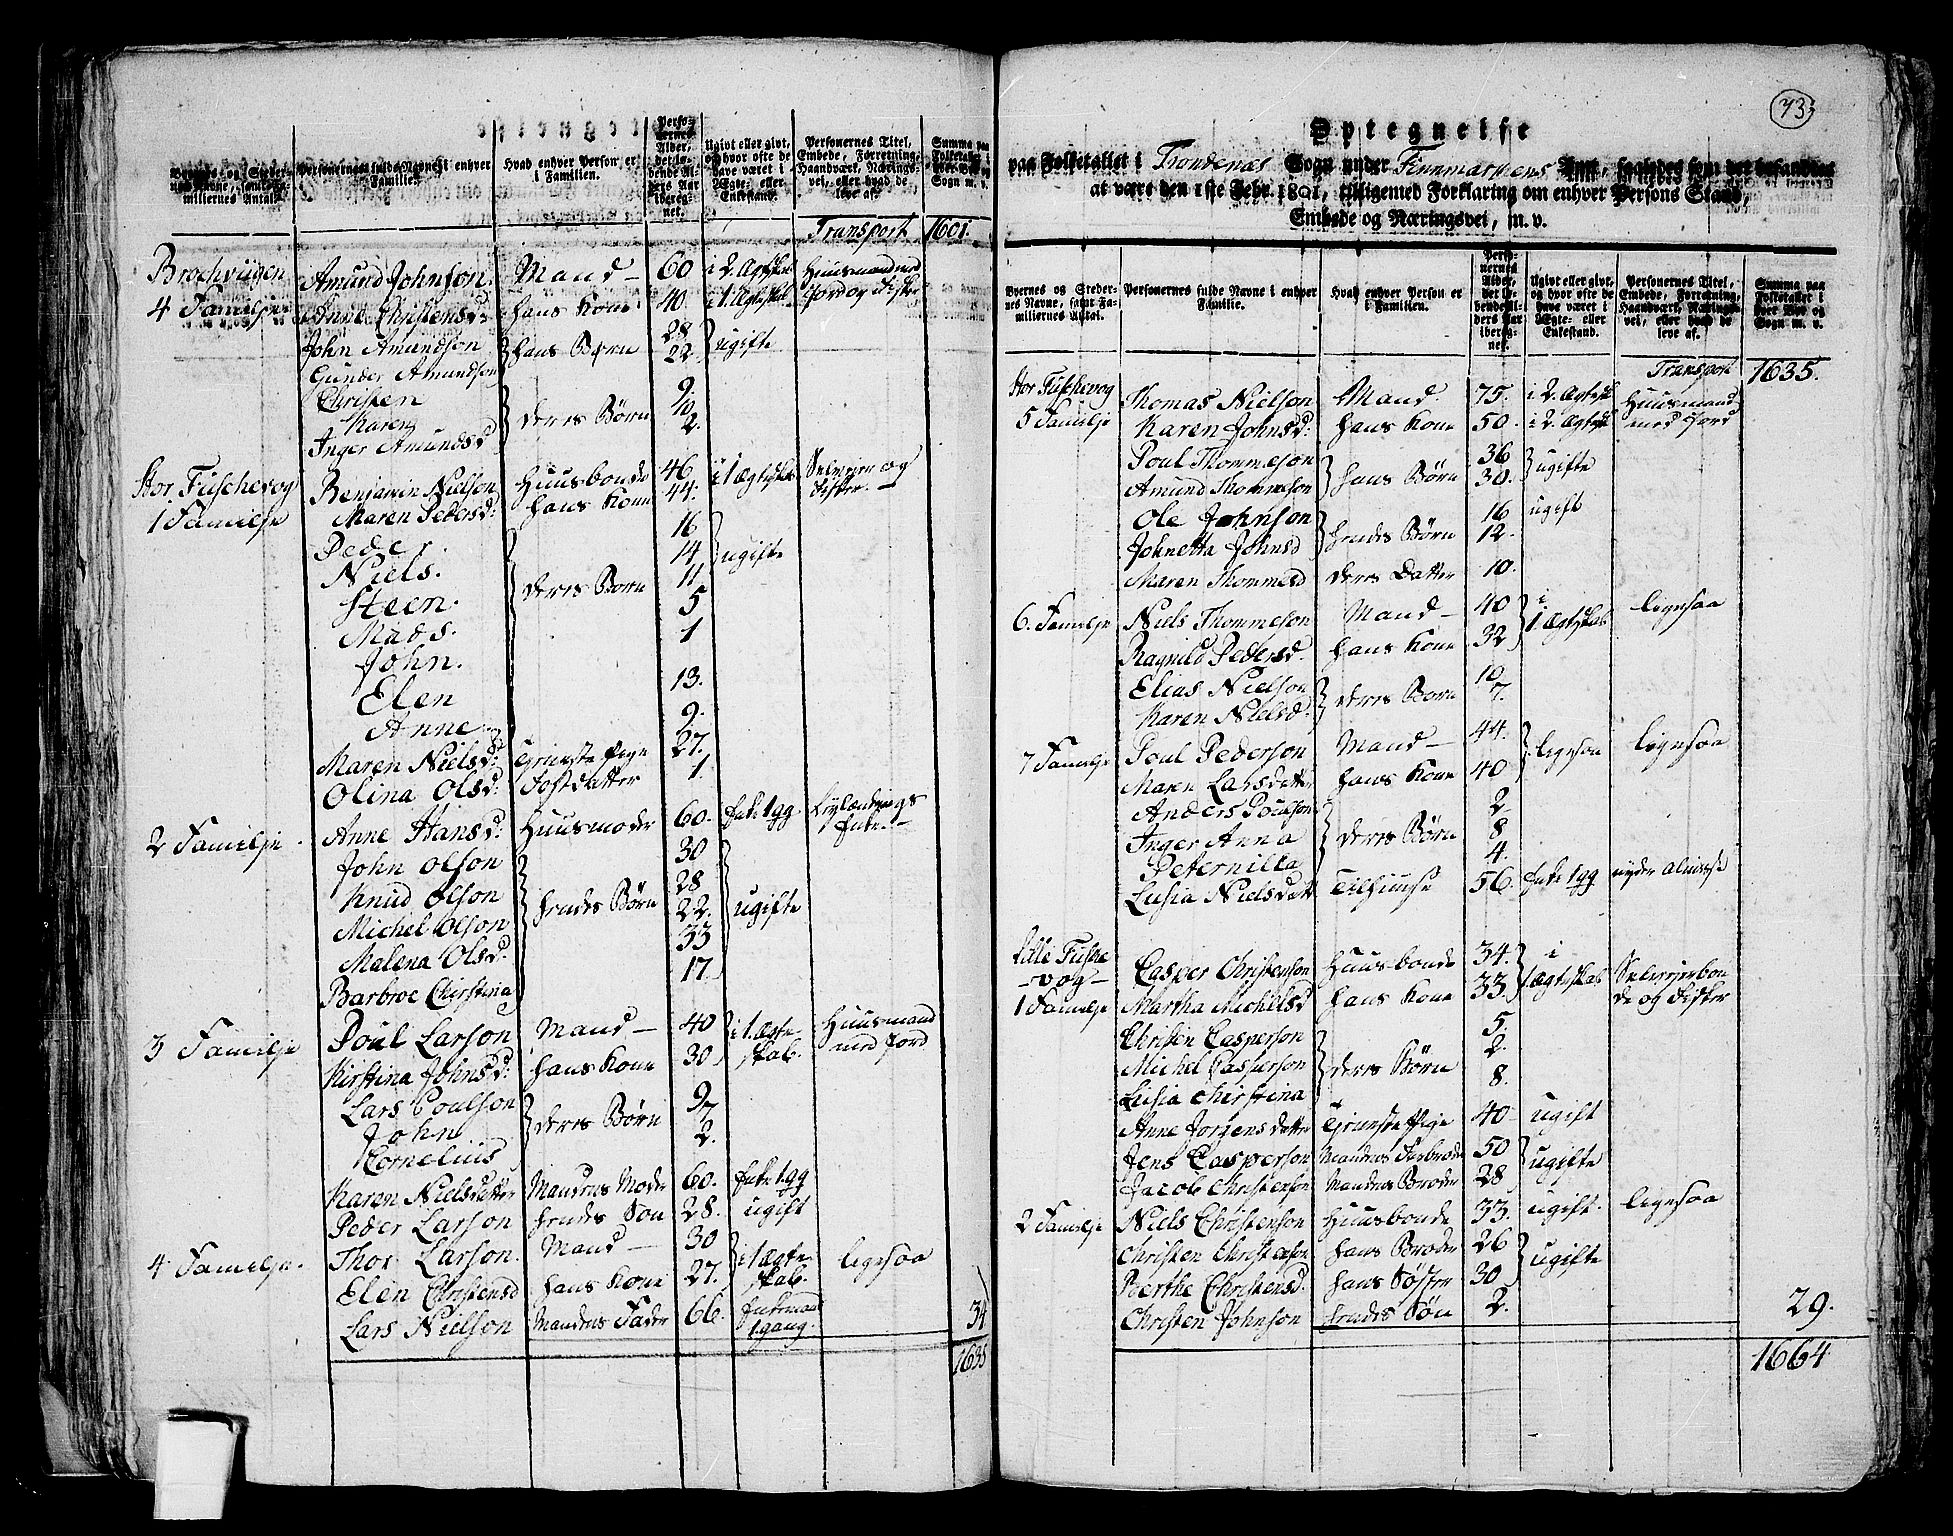 Byernes og Stedernes Navne, samt Familiernes Antal.
Personernes fulde Navne i enhver Familie.
Hvad enhver Person er i Familien.
Personernes Alder, det løbende Alders Aar iberegnet.
Ugivt eller givt, og hvor ofte de have været i Ægte- eller Enkestand.
Personernes Titel, Embede, Forretning, Haandværk, Næringsvei, eller hvad de leve af.
Summa paa Folketallet i hver Bye og Sogn m. v.
Transport 1601.
Brochviigen
4 Familjer Amund Johnson Mand 60 i 2. Ægtesk. Huusmand med
Christensd: hans Kone 40 i 1. Ægtesk. Jord og Fisker
John Amundson hans Børn 28 ugifte
Gunder Amundson 22
Christen deres Børn 9
Karen
Inger Amundsd 2.
Stor Fuschevog Benjamin Nielson Huusbonde 46 i 1 Ægteskab Selveier og
1 Familje Maren Pedersd: hans Kone 44. Fisker
Peder. deres Børn 16 ugifte
Niels. 14
Steen. 11
Mads. 5
John. 1
Elen 13.
Anne. 9.
Maren Nielsd: Tieneste Pige 27.
Olina Olsd: Fostdatter 1.
2 Familje. Anne Hansd: Huusmoder 60. Enke 1 gg
John Olson hendes Børn 30 ugifte
Knud Olson 28
Michel Olson 22.
Malena Olsd: 33
Barbroe Chirstina 17.
3 Familje Poul Larson Mand 40 i 1. Ægte- Huusmand
Kirstina Johnsd: hans Kone 30 skab. med Jord
Lars Poulson deres Børn 9
John 7
Kornelius 2.
Karen Nielsdatter Mandens Moder 60. Enke 1 gg
Peder Larson hendes Søn 28. ugift
4 Familje. Thor Larson. Mand 30 i 1 Ægte- ligesaa
Elen Christensd hans Kone 27. skab.
Lars Nielson Mandens Fader 66. Enkemand 34
1 gang. 1635
73
Optegnelse
paa Folketallet i Trondenæs Sogn under Finnmarkens Amt, saaledes som det befandtes
at være den 1ste Febr. 1801, tilligemed Forklaring om enhver Persons Stand,
Embede og Næringsvei, m. v.
Byernes og Stedernes Navne, samt Familiernes Antal.
Personernes fulde Navne i enhver Familie.
Hvad enhver Person er i Familien.
Personernes Alder, det løbende Alders Aar iberegnet.
Ugivt eller givt, og hvor ofte de have været i Ægte- eller Enkestand.
Personernes Titel, Embede, Forretning, Haandværk, Næringsvei, eller hvad de leve af.
Summa paa Folketallet i hver Bye og Sogn m. v.
Transport 1635.
Stor Fuschevog Thomas Nielson Mand 75. i 2. Ægtesk Huusmand
5 Familje Karen Johnsd: hans Kone 50. i 2. Ægtesk med Jord
Poul Thommeson hans Børn 36 ugifte
Amund Thommeson 30.
Ole Johnson hendes Børn 16 ugift
Johnetta Johnsd 12.
Maren Thommesd deres Datter 10.
6. Familje Niels Thommeson Mand 40 i ligesaa
Ragnild Pedersd. hans Kone 32 1 Ægteskab
Elias Nielson deres Børn 10
Karen Nielsd. 7.
7 Familje Poul Pederson Mand 44. ligesaa ligesaa
Maren Larsdatter hans Kone 40
Anders Poulson deres Børn 2.
Inger Anna 8
Peternilla 4.
Lusia Nielsdatt Tilhuuse 56. Enke 1 gg nyder Almisse
Lille Fuske
-vog- Casper Christenson Huusbonde 34. i Selveierbon
1 Familje Martha Michelsd hans Kone 33. 1 Ægteskab de og Fisker
Christen Casperson deres Børn 5.
Michel Casperson 2.
Lusia Chirstina 8.
Anne Jorgensdatter Tieneste Pige 40 ugift
Jens Casperson Mandens Farbroder 50 ugifte
Jacob Christenson Mandens Broder 28
2 Familje Niels Christenson Huusbonde 33. ugift. ligesaa
Christen Christenson hans Broder 26 ugifte
Berthe Christensd. hans Søster 30
Christen Johnson hendes Søn 2. 29.
1664